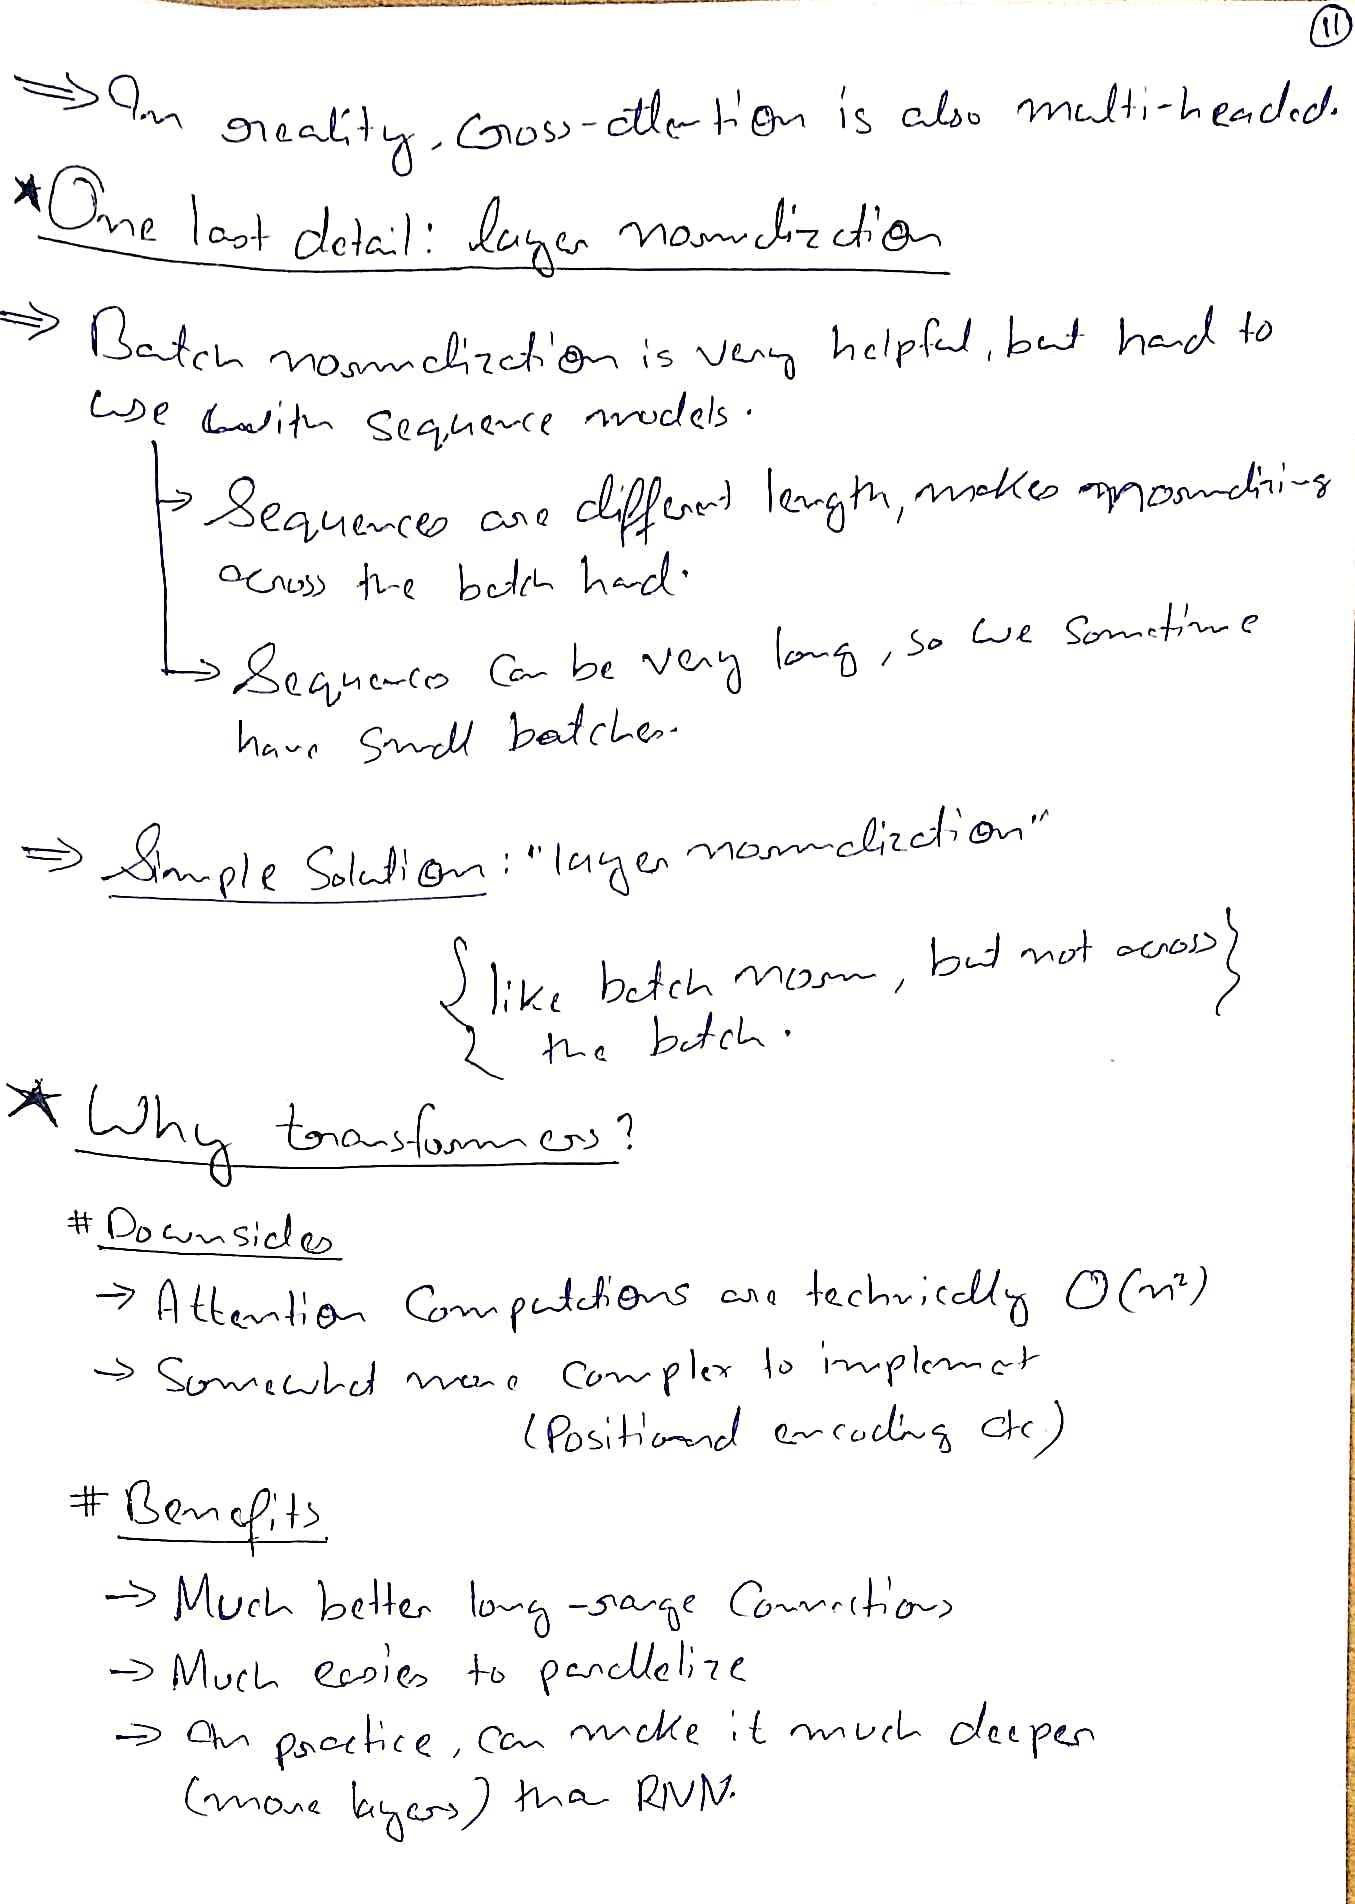 11
⇒ In reality, cross-attention is also multi-headed.
★ One last detail: layer normalization
⇒ Batch normalization is very helpful, but hard to
use with sequence models.
↳ Sequences are different length, makes normalizing
across the batch hard.
↳ Sequences can be very long, so we sometime
have small batches.
⇒ Simple Solution: "layer normalization"
{ like batch norm, but not across }
the batch.
★ Why transformers?
# Downsides
→ Attention Computations are technically O(n²)
→ Somewhat more complex to implement
(Positional encoding etc.)
# Benefits
→ Much better long-range Connections
→ Much easier to parallelize
→ In practice, can make it much deeper
(more layers) than RNN.